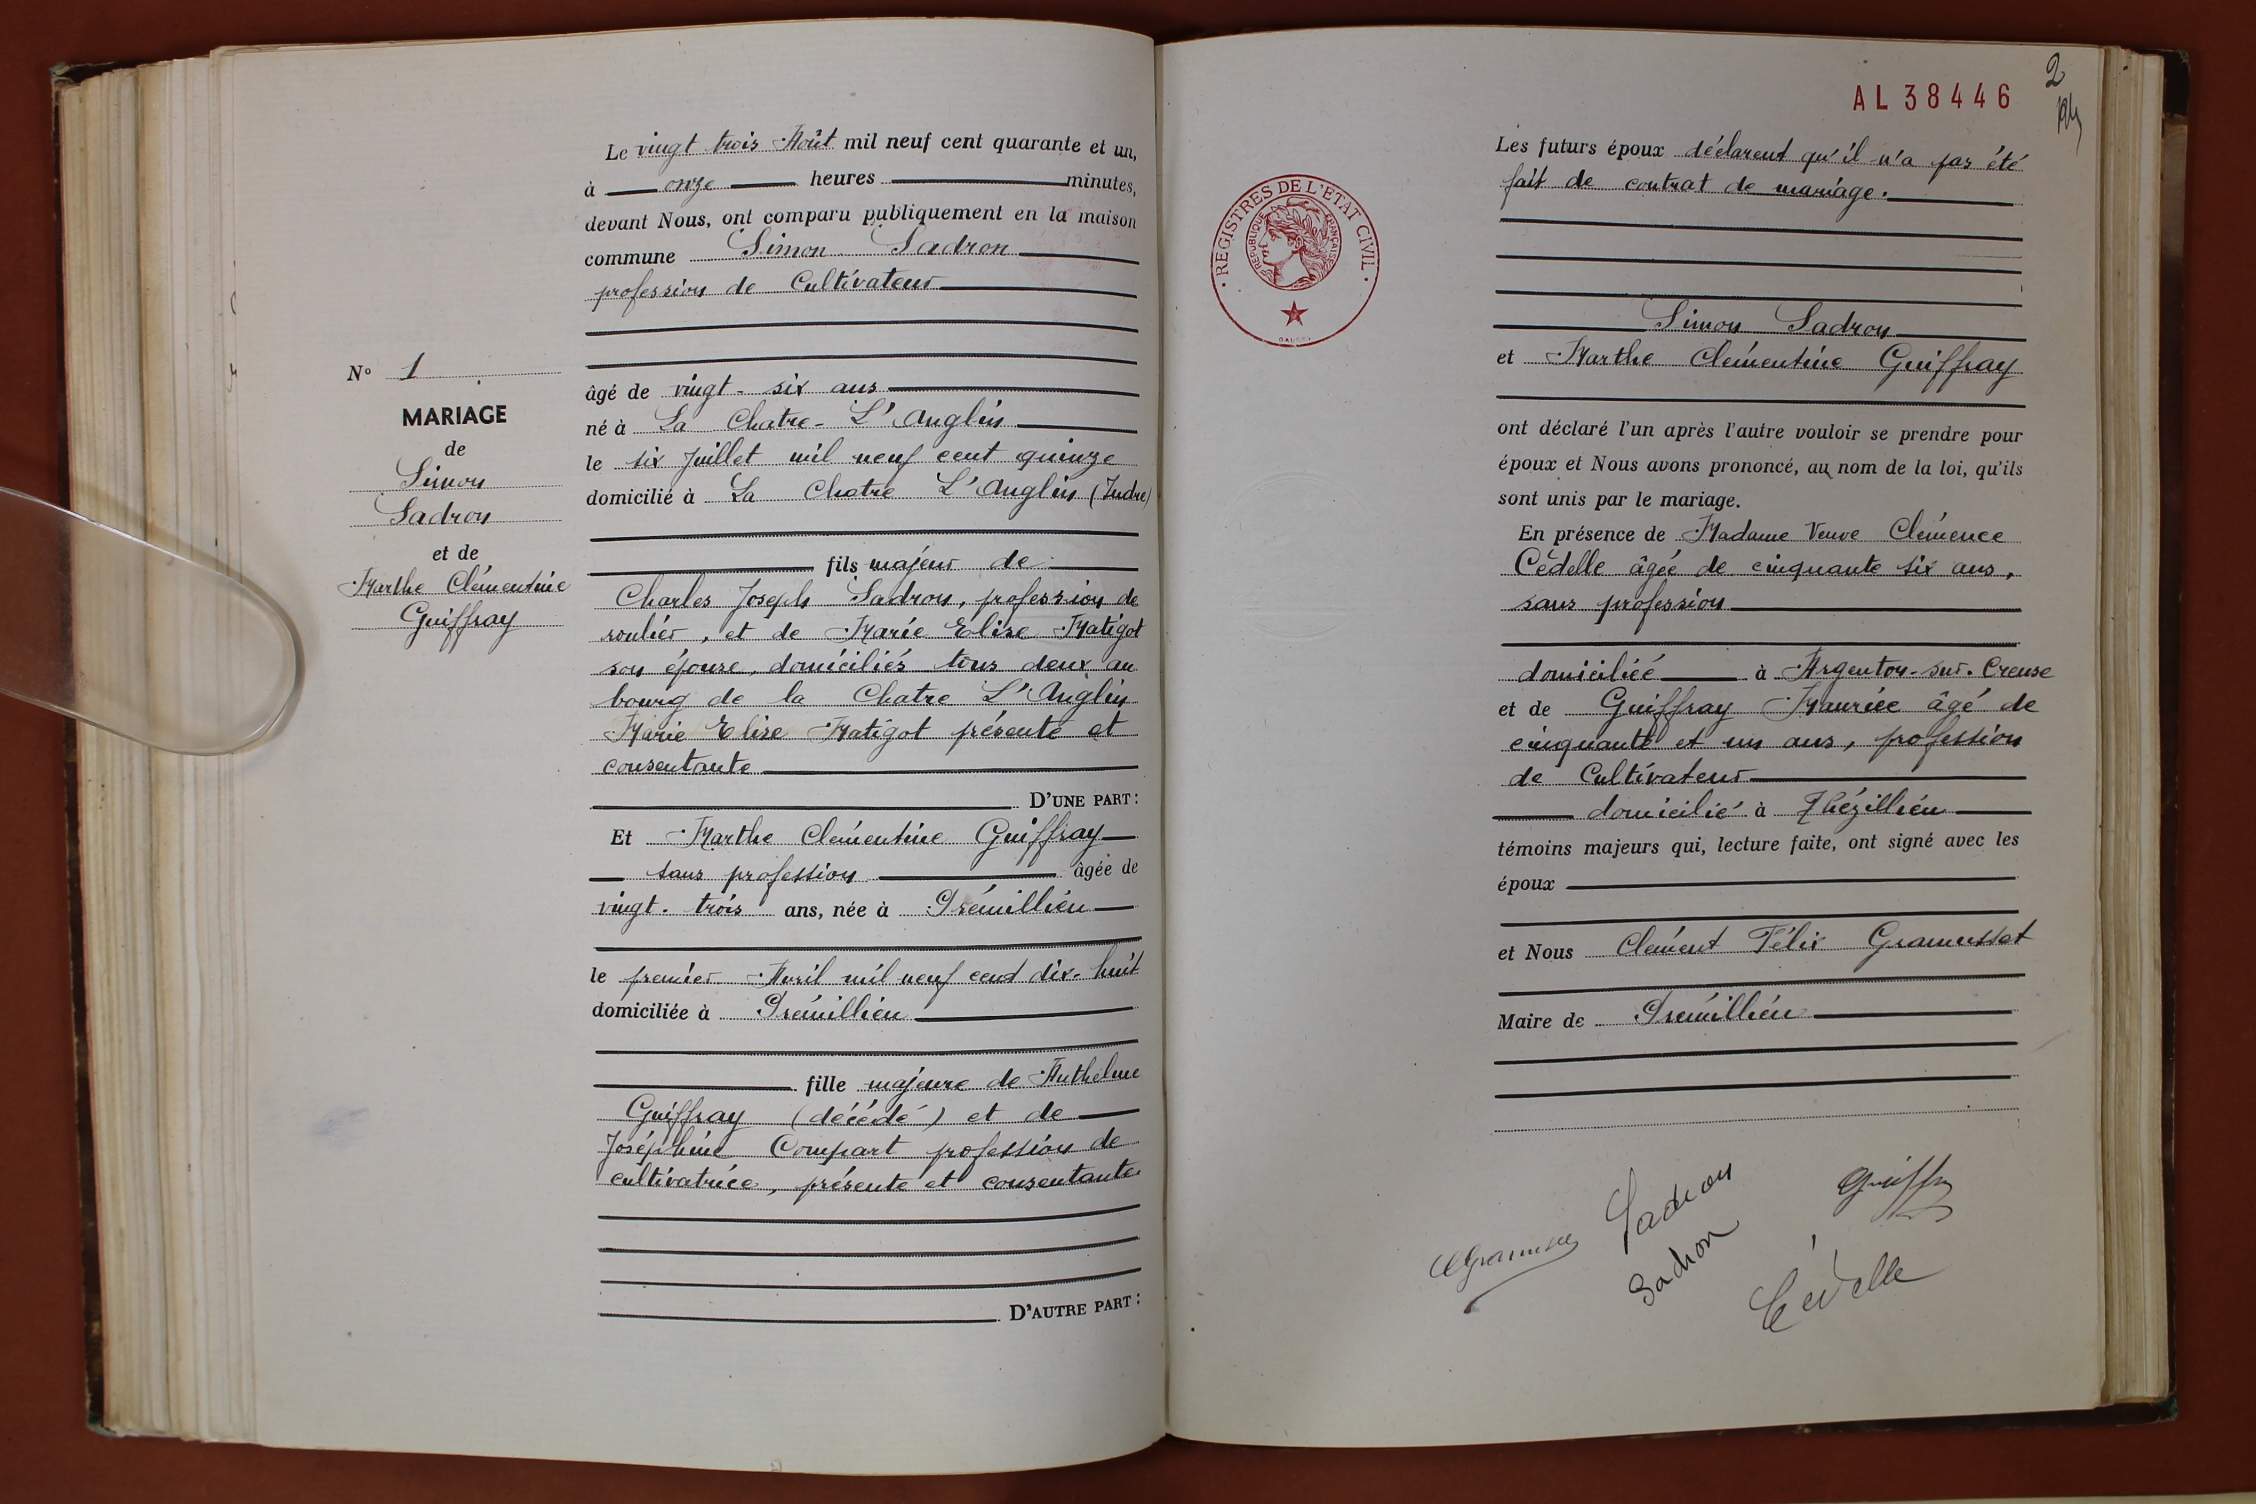 Le vingt trois Août mil neuf cent quarante et un,
à onze heures minutes,
devant Nous, ont comparu publiquement en la maison
commune Simon Sadron
profession de Cultivateur
âgé de vingt-six ans
né à La Chatre-L'Anglin
le six Juillet mil neuf cent quinze
domicilié à La Chatre L'Anglin (Indre)
fils majeur de
Charles Joseph Sadron, profession de
roulier, et de Marie Elise Matigot
son épouse, domiciliés tous deux au
bourg de la Chatre L'Anglin
Marie Elise Matigot présente et
consentante
D'UNE PART:
Et Marthe Clémentine Guiffray
sans profession âgée de
vingt-trois ans, née à Prémillieu
le premier Avril mil neuf cent dix-huit
domiciliée à Prémillieu
fille majeure de Anthelme
Guiffray (décédé) et de
Joséphine Compart profession de
cultivatrice, présente et consentante
D'AUTRE PART:
N° 1
MARIAGE
de
Simon
Sadron
et de
Marthe Clémentine
Guiffray
AL 38446
2
· REGISTRES DE L'ETAT CIVIL ·
REPUBLIQUE FRANÇAISE
Les futurs époux déclarent qu'il n'a pas été
fait de contrat de mariage.
Simon Sadron
et Marthe Clémentine Guiffray
ont déclaré l'un après l'autre vouloir se prendre pour
époux et Nous avons prononcé, au nom de la loi, qu'ils
sont unis par le mariage.
En présence de Madame Veuve Clémence
Cédelle âgée de cinquante six ans,
sans profession
domiciliée à Argenton-sur-Creuse
et de Guiffray Maurice âgé de
cinquante et un ans, profession
de Cultivateur
domicilié à Thézillieu
témoins majeurs qui, lecture faite, ont signé avec les
époux
et Nous Clément Félix Gramusset
Maire de Prémillieu
Sadron
Guiffray
CGramusset
Sadron
Cédelle